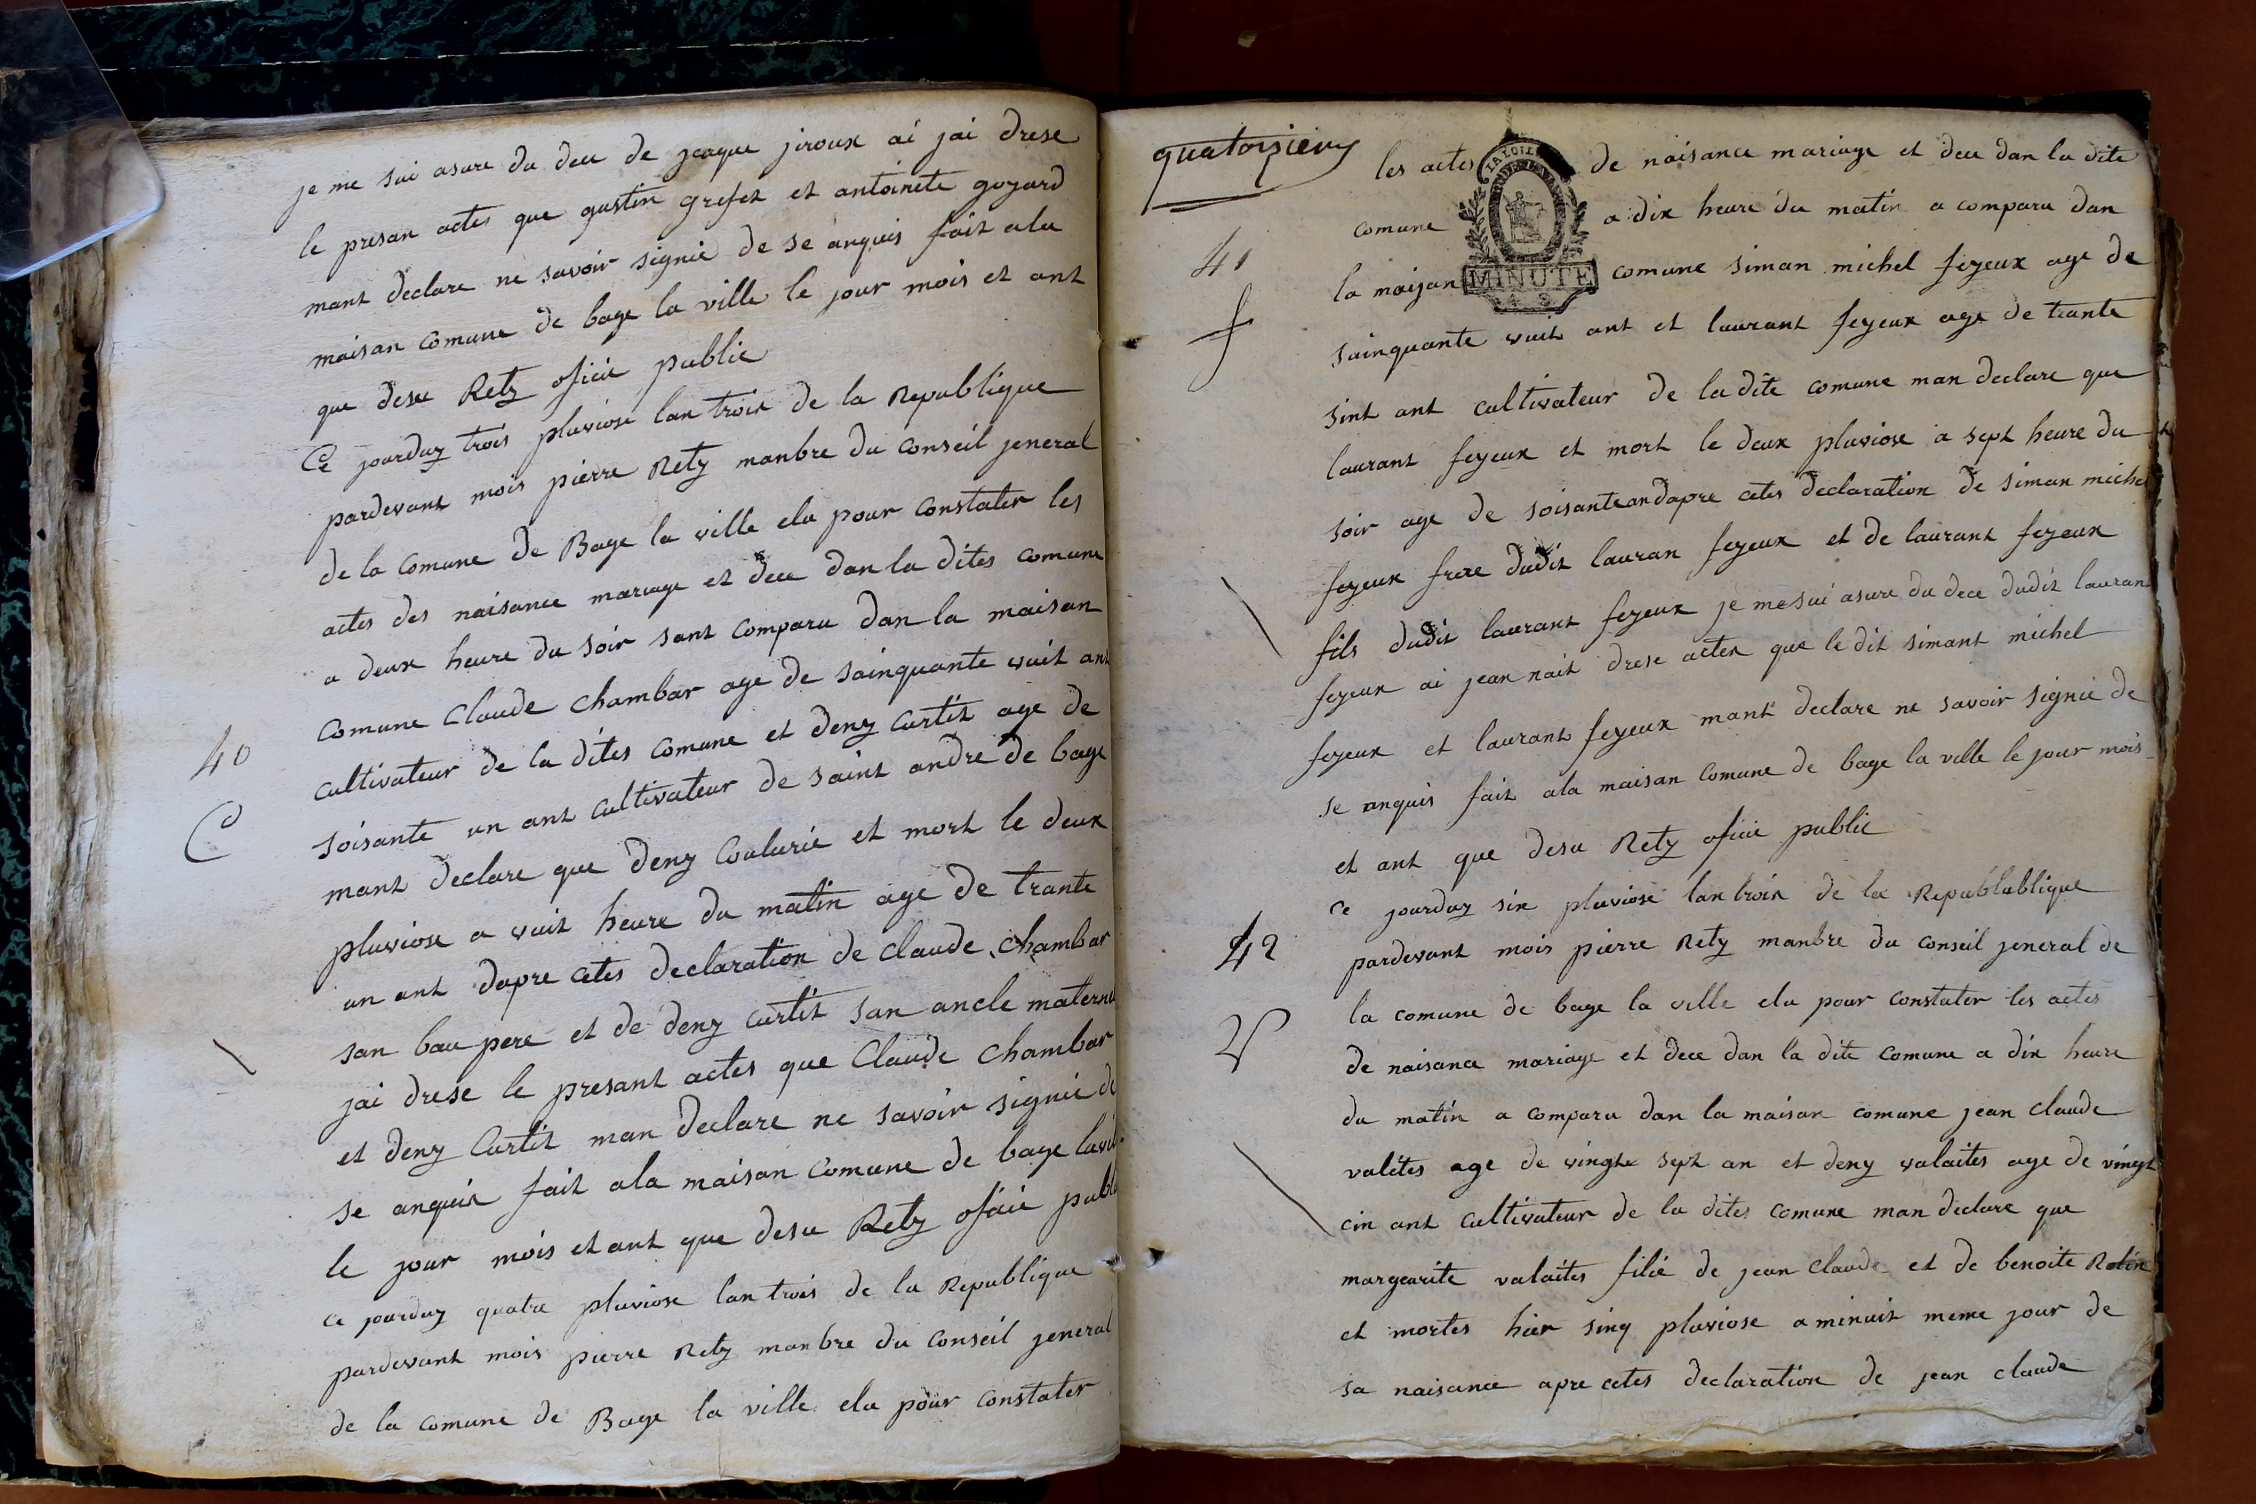 je me sui asure du dece de jcaque jiroux ai jai drese
le presan actes que gustin grefet et antoinete goyard
mant declare ne savoir signié de se anquis fait ala
maisan comune de bage la ville le jour mois et ant
que desu Rety ofisié public
Ce jourduy trois pluviose lan troix de la Republique
pardevant mois pierre Rety manbre du conseil jeneral
de la comune de Bage la ville elu pour constater les
actes des naisance mariage et dece dan la dites comune
a deux heure du soir sant comparu dan la maisan
Comune Claude Chambar age de sainquante vuit ant
40
cultivateur de la dites comune et deny curtit age de
soisante un ant cultivateur de saint andre de bage
C
mant declare que deny Coulurié et mort le deux
pluviose a vuit heure du matin age de trante
un ant dapre cetes declaration de claude chambar
san bau pere et de deny curtit san ancle maternel
jai drese le presant actes que Claude Chambar
et deny Curtit man declare ne savoir signié de
se anquix fait ala maisan comune de bage la vil
le jour mois et ant que desu Rety ofisié public
ce jourduy quatre pluviose lan trois de la Republique
pardevant mois pierre Rety manbre du conseil jeneral
de la comune de Bage la ville elu pour constater
quatorsieme
les actes de naisance mariage et dece dan la dite
LA LOI
comune a dix heure du matin a comparu dan
41
la maisan comune siman michel feyeux age de
MINUTE
f
sainquante vuit ant et laurant feyeux age de trante
sint ant cultivateur de la dite comune man declare que
laurant feyeux et mort le deux pluviose a sept heure du
soir age de soisanteandapre cetes declaration de siman michel
feyeux frere dudit lauran feyeux et de laurant feyeux
fils dudit laurant feyeux je me sui asure du dece dudit lauran
feyeux ai jean nait drese actex que le dit simant michel
feyeux et laurant feyeux mant declare ne savoir signié de
se anquis fait ala maisan comune de bage la ville le jour mois
et ant que desu Rety ofisié public
ce jourduy six pluviose lan troix de la Republublique
42
pardevant mois pierre Rety manbre du conseil jeneral de
la comune de bage la ville elu pour constater les actes
V
de naisance mariage et dece dan la dite comune a dix heure
du matin a comparu dan la maisan comune jean claude
valetes age de vingte sept an et deny valaites age de vingt
cin ant cultivateur de la dites comune man declare que
margeurite valaites filié de jean Claude et de benoite Rolin
et mortes hier sinq pluviose a minuit meme jour de
sa naisance apre cetes declaration de jean claude